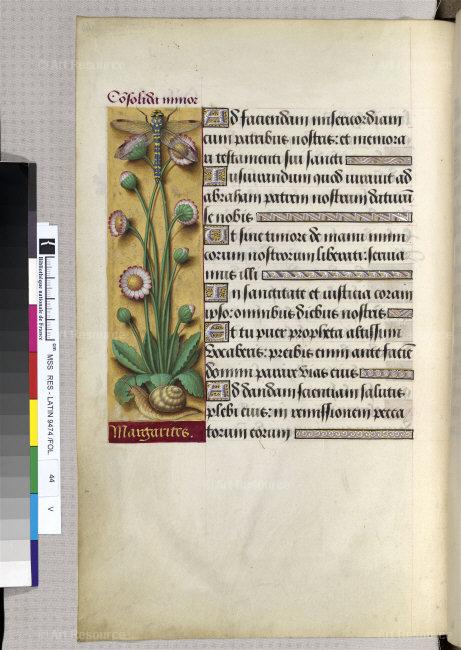 Cõsolida minor
Ad faciendam misericordiam
cum patribus nostris: et memora
ri testamenti sui sancti
Iusiurandum quod iuravit ad
abraham patrem nostrum daturũ
se nobis
Ut sine timore de manu inimi
corum nostrorum liberati: servia
mus illi
In sanctitate et iusticia coram
ipso: omnibus diebus nostris
Et tu puer propheta altissimi
vocaberis: preibis enim ante faciē
domini parare vias eius
Ad dandam scientiam salutis
plebi eius: in remissionem pecca
torum eorum
Margarites.
Bibliothèque nationale de France
MSS RES - LATIN 9474 /FOL
44
V
© Art Resource